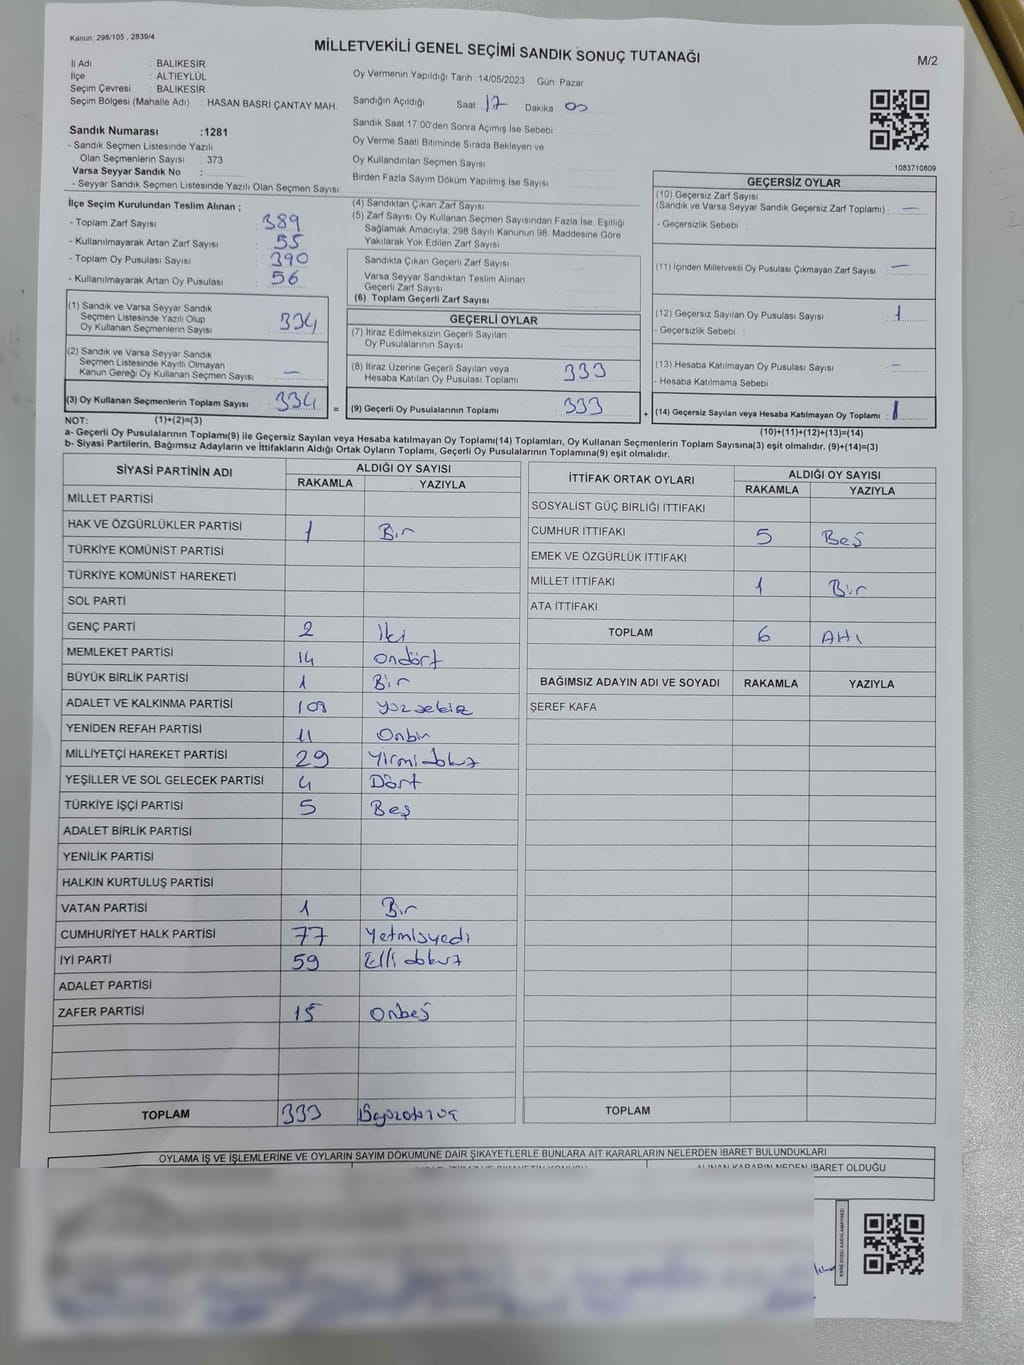 Kanun: 298/105 , 2839/4
MİLLETVEKİLİ GENEL SEÇİMİ SANDIK SONUÇ TUTANAĞI
M/2
İl Adı : BALIKESİR
İlçe : ALTIEYLÜL
Seçim Çevresi : BALIKESİR
Seçim Bölgesi (Mahalle Adı) : HASAN BASRİ ÇANTAY MAH.
Sandık Numarası :1281
- Sandık Seçmen Listesinde Yazılı
Olan Seçmenlerin Sayısı : 373
Varsa Seyyar Sandık No :
- Seyyar Sandık Seçmen Listesinde Yazılı Olan Seçmen Sayısı:
Oy Vermenin Yapıldığı Tarih :14/05/2023 Gün: Pazar
Sandığın Açıldığı Saat: 17 Dakika 00
Sandık Saat 17:00'den Sonra Açımış İse Sebebi
Oy Verme Saati Bitiminde Sırada Bekleyen ve
Oy Kullandırılan Seçmen Sayısı
Birden Fazla Sayım Döküm Yapılmış İse Sayısı
1083710809
İlçe Seçim Kurulundan Teslim Alınan ;
- Toplam Zarf Sayısı : 389
- Kullanılmayarak Artan Zarf Sayısı : 55
- Toplam Oy Pusulası Sayısı : 390
- Kullanılmayarak Artan Oy Pusulası : 56
(1) Sandık ve Varsa Seyyar Sandık
Seçmen Listesinde Yazılı Olup
Oy Kullanan Seçmenlerin Sayısı : 334
(2) Sandık ve Varsa Seyyar Sandık
Seçmen Listesinde Kayıtlı Olmayan
Kanun Gereği Oy Kullanan Seçmen Sayısı : —
(3) Oy Kullanan Seçmenlerin Toplam Sayısı : 334
(4) Sandıktan Çıkan Zarf Sayısı
(5) Zarf Sayısı Oy Kullanan Seçmen Sayısından Fazla İse, Eşitliği
Sağlamak Amacıyla; 298 Sayılı Kanunun 98. Maddesine Göre
Yakılarak Yok Edilen Zarf Sayısı
Sandıkta Çıkan Geçerli Zarf Sayısı
Varsa Seyyar Sandıktan Teslim Alınan
Geçerli Zarf Sayısı
(6) Toplam Geçerli Zarf Sayısı
GEÇERLİ OYLAR
(7) İtiraz Edilmeksizin Geçerli Sayılan
Oy Pusulalarının Sayısı
(8) İtiraz Üzerine Geçerli Sayılan veya
Hesaba Katılan Oy Pusulası Toplamı : 333
= (9) Geçerli Oy Pusulalarının Toplamı : 333
GEÇERSİZ OYLAR
(10) Geçersiz Zarf Sayısı
(Sandık ve Varsa Seyyar Sandık Geçersiz Zarf Toplamı) : —
- Geçersizlik Sebebi :
(11) İçinden Milletvekili Oy Pusulası Çıkmayan Zarf Sayısı : —
(12) Geçersiz Sayılan Oy Pusulası Sayısı : 1
- Geçersizlik Sebebi :
(13) Hesaba Katılmayan Oy Pusulası Sayısı : —
- Hesaba Katılmama Sebebi :
+ (14) Geçersiz Sayılan veya Hesaba Katılmayan Oy Toplamı : 1
NOT: (1)+(2)=(3)
(10)+(11)+(12)+(13)=(14)
a- Geçerli Oy Pusulalarının Toplamı(9) ile Geçersiz Sayılan veya Hesaba katılmayan Oy Toplamı(14) Toplamları, Oy Kullanan Seçmenlerin Toplam Sayısına(3) eşit olmalıdır. (9)+(14)=(3)
b- Siyasi Partilerin, Bağımsız Adayların ve İttifakların Aldığı Ortak Oyların Toplamı, Geçerli Oy Pusulalarının Toplamına(9) eşit olmalıdır.
SİYASİ PARTİNİN ADI ALDIĞI OY SAYISI
RAKAMLA YAZIYLA
MİLLET PARTİSİ
HAK VE ÖZGÜRLÜKLER PARTİSİ 1 Bir
TÜRKİYE KOMÜNİST PARTİSİ
TÜRKİYE KOMÜNİST HAREKETİ
SOL PARTİ
GENÇ PARTİ 2 İki
MEMLEKET PARTİSİ 14 Ondört
BÜYÜK BİRLİK PARTİSİ 1 Bir
ADALET VE KALKINMA PARTİSİ yüzsekiz
YENİDEN REFAH PARTİSİ 11 Onbir
MİLLİYETÇİ HAREKET PARTİSİ 29 Yirmidokuz
YEŞİLLER VE SOL GELECEK PARTİSİ 4 Dört
TÜRKİYE İŞÇİ PARTİSİ 5 Beş
ADALET BİRLİK PARTİSİ
YENİLİK PARTİSİ
HALKIN KURTULUŞ PARTİSİ
VATAN PARTİSİ 1 Bir
CUMHURİYET HALK PARTİSİ 77 Yetmişyedi
İYİ PARTİ 59 Elli dokuz
ADALET PARTİSİ
ZAFER PARTİSİ 15 Onbeş
TOPLAM 333
İTTİFAK ORTAK OYLARI ALDIĞI OY SAYISI
RAKAMLA YAZIYLA
SOSYALİST GÜÇ BİRLİĞİ İTTİFAKI
CUMHUR İTTİFAKI 5 Beş
EMEK VE ÖZGÜRLÜK İTTİFAKI
MİLLET İTTİFAKI 1 Bir
ATA İTTİFAKI
TOPLAM 6 Altı
BAĞIMSIZ ADAYIN ADI VE SOYADI RAKAMLA YAZIYLA
ŞEREF KAFA
TOPLAM
OYLAMA İŞ VE İŞLEMLERİNE VE OYLARIN SAYIM DÖKÜMÜNE DAİR ŞİKAYETLERLE BUNLARA AİT KARARLARIN NELERDEN İBARET BULUNDUKLARI
ALINAN KARARIN NEDEN İBARET OLDUĞU
KARE KODU KARALAMAYINIZ!